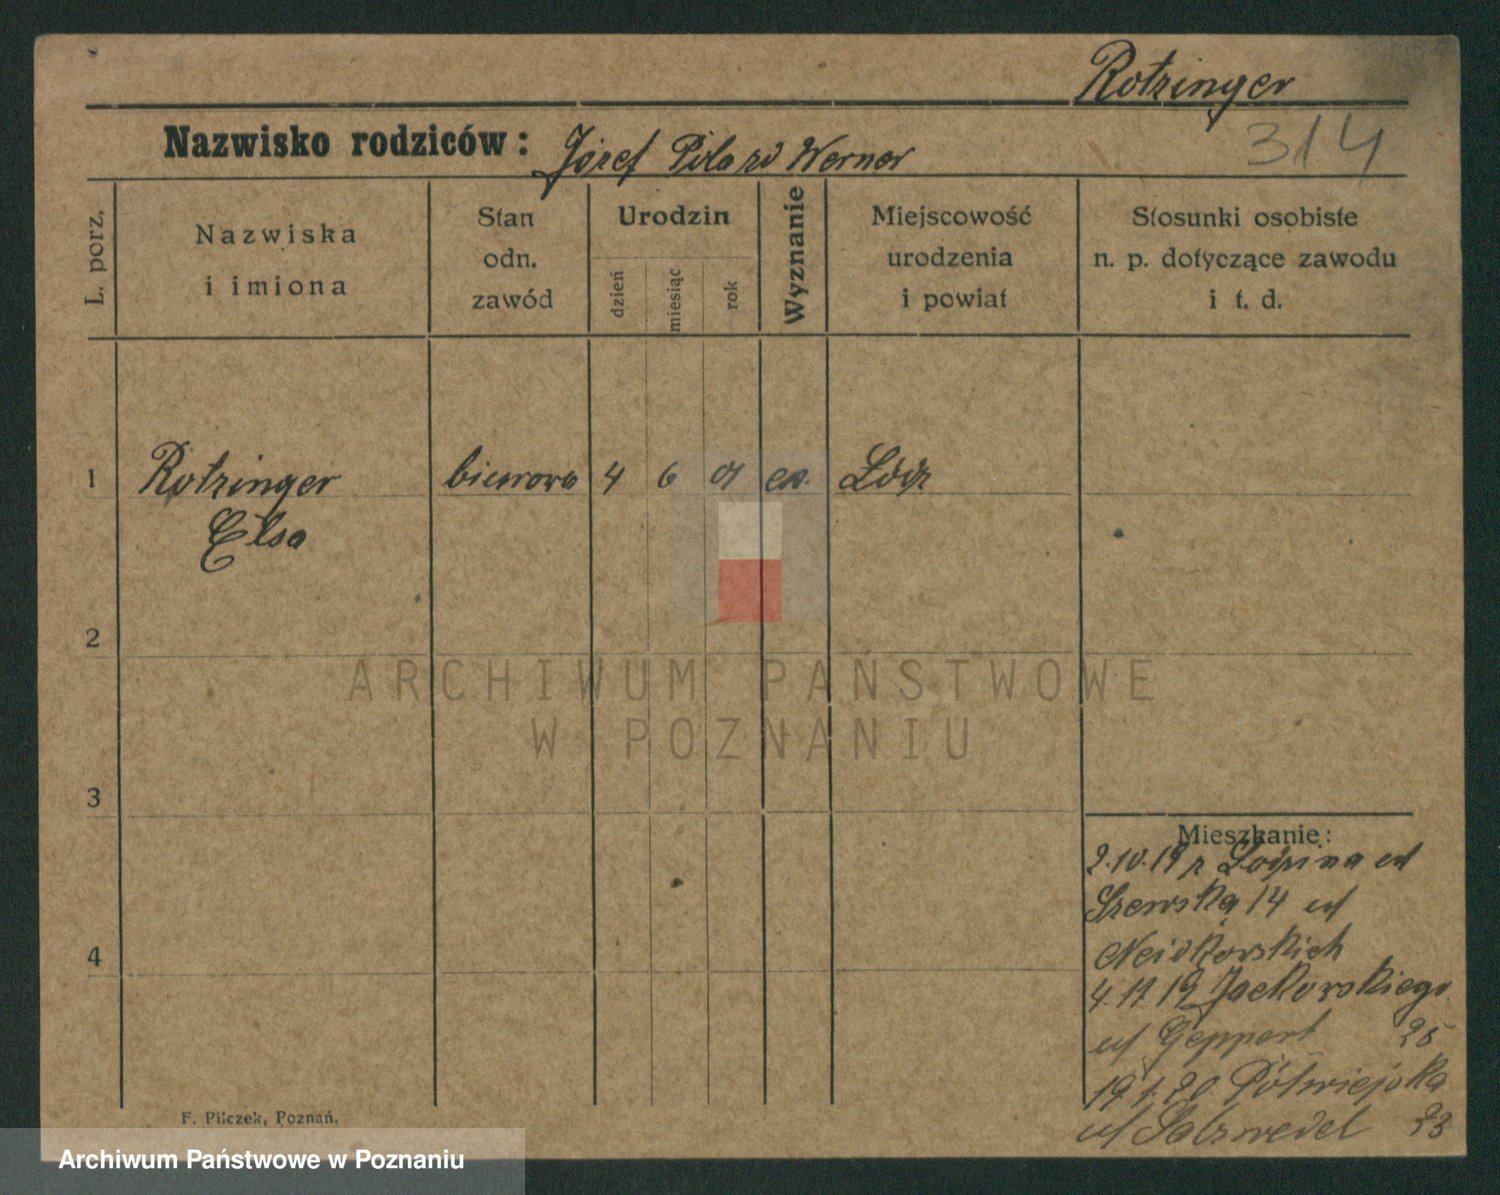 Rotzinger
314
Nazwisko rodziców: Józef Werner
L. porz.
Nazwiska
i imiona
Stan
odn.
zawód
Urodzin
dzień
miesiąc
rok
Wyznanie
Miejscowość
urodzenia
i powiat
Stosunki osobiste
n. p. dotyczące zawodu
i t. d.
1 Rotzinger biurowa 4 6 01 ew. Łódź
Elsa
2
ARCHIWUM PAŃSTWOWE
W POZNANIU
3
Mieszkanie:
2.10.19 z
Szewska 14
4
4.11.19 Jackowskiego
Geppert 25
19.1.20 Półwiejska
Salzwedel 23
F. Pilczek, Poznań.
Archiwum Państwowe w Poznaniu